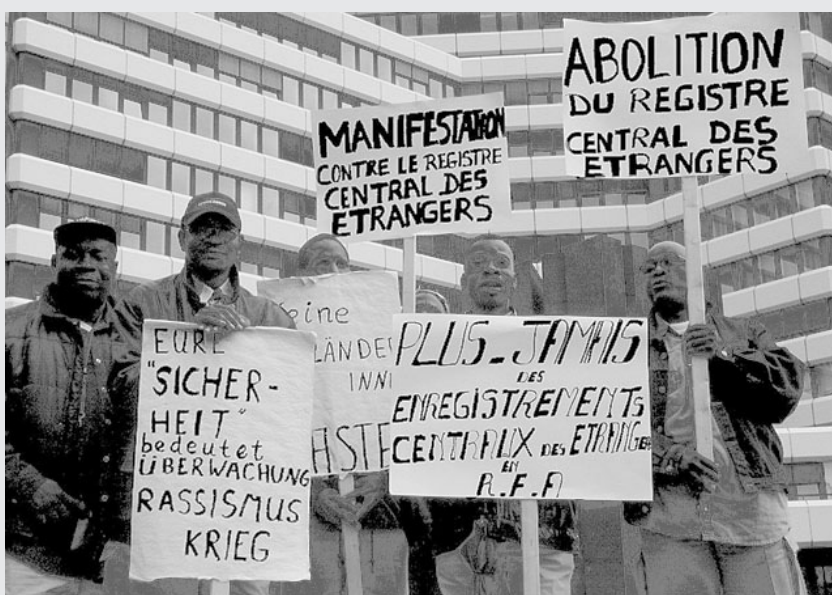 ABOLITION
DU REGISTRE
CENTRAL DES
ETRANGERS
MANIFESTATION
CONTRE LE REGISTRE
CENTRAL DES
ETRANGERS
EURE
"SICHER-
HEIT"
bedeutet
ÜBERWACHUNG
RASSISMUS
KRIEG
eine
LÄNDE
INN
ASTE
PLUS-JAMAIS
DES
ENREGISTREMENTS
CENTRAUX DES ETRANGER
EN
R.F.A